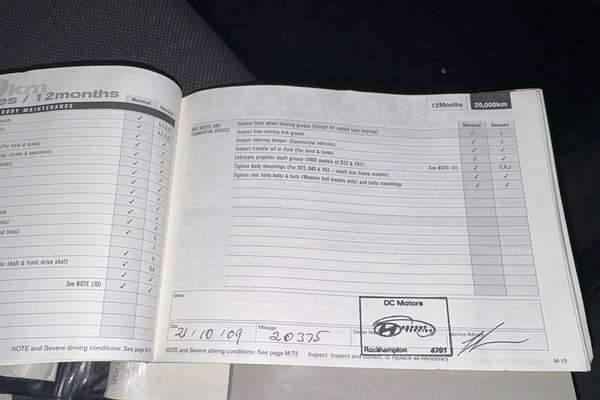 0km
es / 12months
BODY MAINTENANCE
Normal
Severe
(For level & leaks)
shaft & front drive shaft
See NOTE (10)
NOTE and Severe driving conditions: See page
12Months 20,000km
Normal Severe
4WD MODEL AND
COMMERCIAL VEHICLE
Inspect front wheel bearing grease (Except for sealed type bearing)
Inspect free-running hub grease
Inspect steering damper (Commercial vehicles)
Inspect transfer oil or fluid (For level & leaks)
Lubricate propeller shaft grease (4WD models of D22 & Y61)
Tighten body mountings (For D22, D40 & Y61 - small size frame models) See NOTE (4)
Tighten rear body bolts & nuts (Wooden bed models only) and body mountings
Memo
Date 21/10/09 Mileage 20375 Service Advisor
DC Motors
H
Rockhampton 4701
NOTE and Severe driving conditions: See page M-72 Inspect: Inspect and correct, or replace as necessary.
M-15